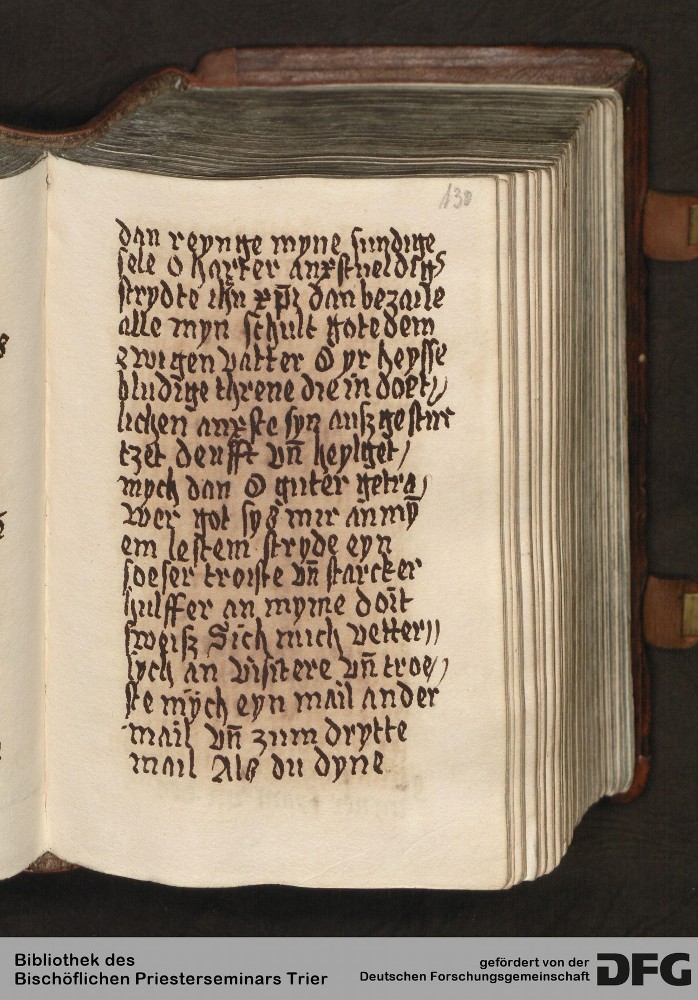 130
dan reynge myne sundige
sele O harter anxstueldigs
strydte ihn xp̄i dan bezaile
alle myn schult gote dem
ewigen vatter O yr heysse
bludige threne die in doet⸗
lichen anxste syn ausz gestur
tzet deufft vn̄ heylget
mych dan O guter getra⸗
wer got sys mir an mȳ
em lestem stryde eyn
soeser troiste vn̄ starcker
hulffer an myme doit
sweisz Sich mich vetter⸗
lych an visitere vn̄ troe⸗
ste mych eyn mail ander
mail vn̄ zum drytte
mail Als du dyne
Bibliothek des
Bischöflichen Priesterseminars Trier
gefördert von der
Deutschen Forschungsgemeinschaft DFG